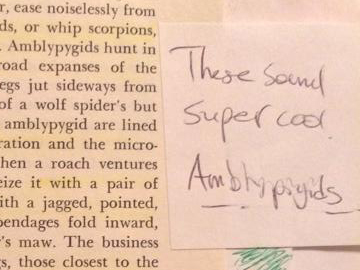 r, ease noiselessly from
ds, or whip scorpions,
. Amblypygids hunt in
road expanses of the
egs jut sideways from
of a wolf spider's but
amblypygid are lined
ration and the micro-
hen a roach ventures
eize it with a pair of
ith a jagged, pointed,
pendages fold inward,
r's maw. The business
gs, those closest to the
These sound
super cool.
Amblypygids